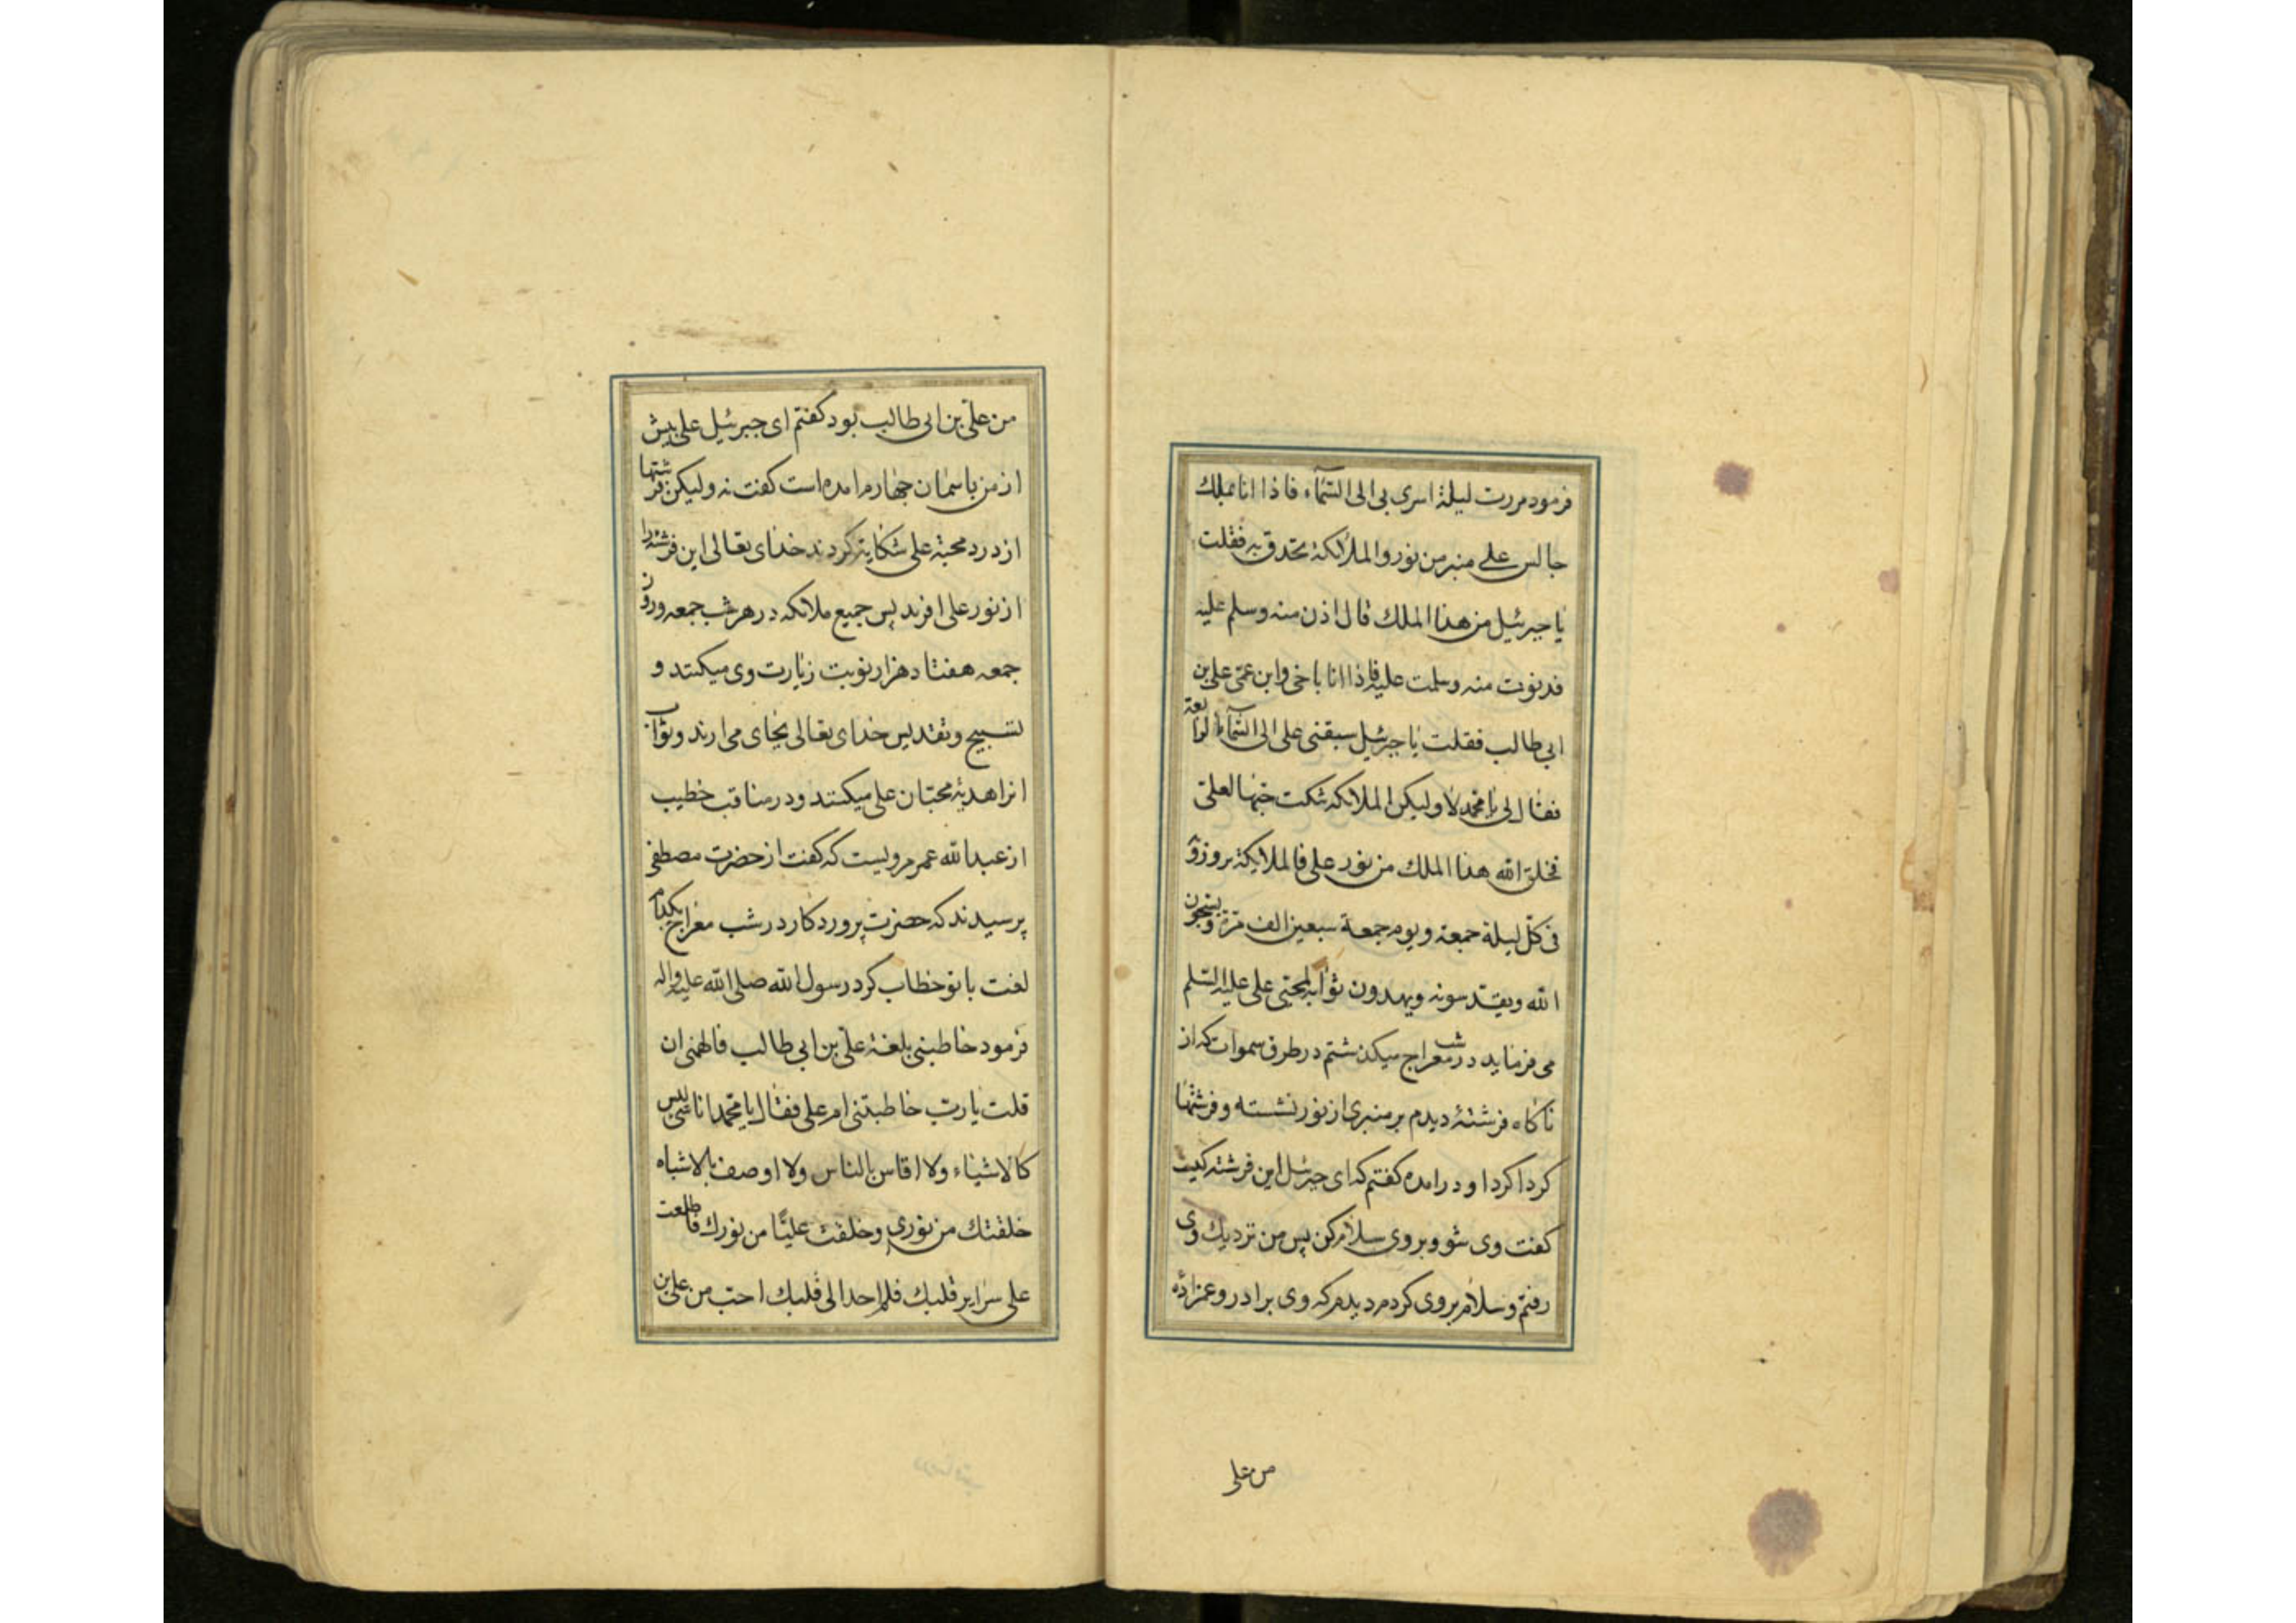 فرمود مررت لیلة اسری بی الی السّمآء فاذا انا بملك
جالس علی منبر من نور والملائکة تحدق به فقلت
یا جبرئیل من هذا الملك قال ادن منه وسلم علیه
فدنوت منه وسلمت علیه فاذا انا باخی وابن عمّی علی بن
ابی طالب فقلت یا جبرئیل سبقنی علی الی السّمآء الرابعة
فقال لی یا محمّد لا ولیکن الملائکه شکت حبّها لعلیّ
فخلق الله هذا الملك من نور علی فالملایکة یزورو
فی کلّ لیلة جمعة ویوم جمعة سبعین الف مرّة ویسبّحون
الله ویقدّسونه ویهدون ثوابه لمحبّی علی علیه السّلم
می فرماید در شب معراج میکذشتم در طرف سموات که از
ناکاه فرشتهٔ دیدم بر منبری از نور نشسته وفرشتها
کرداکرد او درامده کفتم که ای جبرئیل این فرشته کیست
کفت وی شو وبر وی سلام کن پس من نزدیك وی
رفتم وسلام بر وی کردم دیدم که وی برادر وعمزادهٔ
من علی
من علیّ بن ابی طالب بود کفتم ای جبرئیل علی پیش
از من باسمان چهارم امده است کفت نه ولیکن فرشتها
از درد محبة علی شکایة کردند خدای تعالی این فرشته را
از نور علی افرید پس جمیع ملائکه در هر شب جمعه وروز
جمعه هفتاد هزار نوبت زیارت وی میکنند و
تسبیح وتقدیس خدای تعالی بجای می ارند وثواب
انرا هدیهٔ محبّان علی میکنند ودر مناقب خطیب
از عبد الله عمر مرویست که کفت از حضرت مصطفی
پرسیدند که حضرت پروردکار در شب معراج بکدام
لغت با تو خطاب کرد رسول الله صلی الله علیه واله
فرمود خاطبنی بلغة علیّ بن ابی طالب فالهمنی ان
قلت یا ربّ خاطبتنی ام علی فقال یا محمّد انا شئ لیس
کالاشیاء ولا اقاس بالناس ولا اوصف بالاشباه
خلقتك من نوری وخلقت علیّا من نورك فاطلعت
علی سرایر قلبك فلم اجد الی قلبك احبّ من علی بن